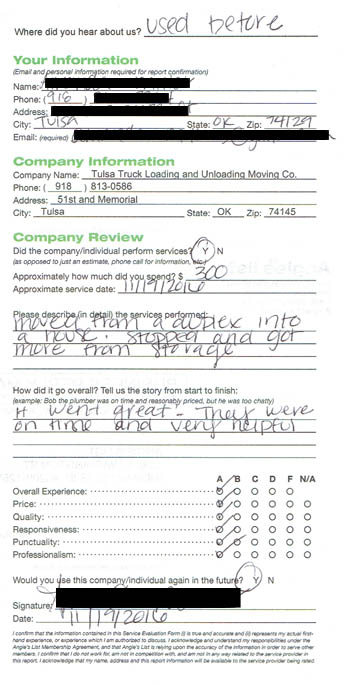 Where did you hear about us? used before
Your Information
(Email and personal information required for report confirmation)
Name:
Phone: (916 )
Address:
City: Tulsa State: OK Zip: 74129
Email: (required)
Company Information
Company Name: Tulsa Truck Loading and Unloading Moving Co.
Phone: ( 918 ) 813-0586
Address: 51st and Memorial
City: Tulsa State: OK Zip: 74145
Company Review
Did the company/individual perform services? Y N
(as opposed to just an estimate, phone call for information, etc.)
Approximately how much did you spend? $ 300
Approximate service date: 11/19/2016
Please describe (in detail) the services performed:
moved from a duplex into
a house. stopped and got
more from storage
How did it go overall? Tell us the story from start to finish:
(example: Bob the plumber was on time and reasonably priced, but he was too chatty)
It went great - They were
on time and very helpful
A B C D F N/A
Overall Experience:
Price:
Quality:
Responsiveness:
Punctuality:
Professionalism:
Would you use this company/individual again in the future? Y N
Signature:
Date: 11/19/2016
I confirm that the information contained in this Service Evaluation Form (i) is true and accurate and (ii) represents my actual first-
hand experience, or experience which I am authorized to discuss. I acknowledge and understand my responsibilities under the
Angie's List Membership Agreement, and that Angie's List is relying upon the accuracy of the information in order to serve other
members. I confirm that I do not work for, am not in competition with, and am not in any way related to the service provider in
this report. I acknowledge that my name, address and this report information will be available to the service provider being rated.